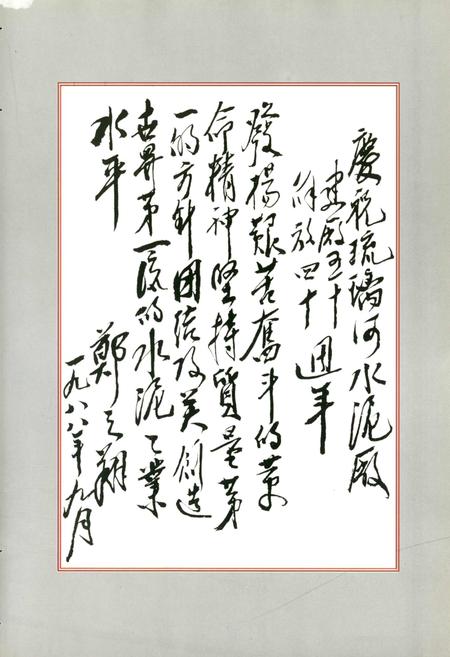 慶祝琉璃河水泥厰
建厰五十
解放四十
週年
發揚艱苦奮斗的革
命精神堅持質量第
一的方針團结攻关創造
世界第一流的水泥工業
水平
鄭之翔
一九八八年九月